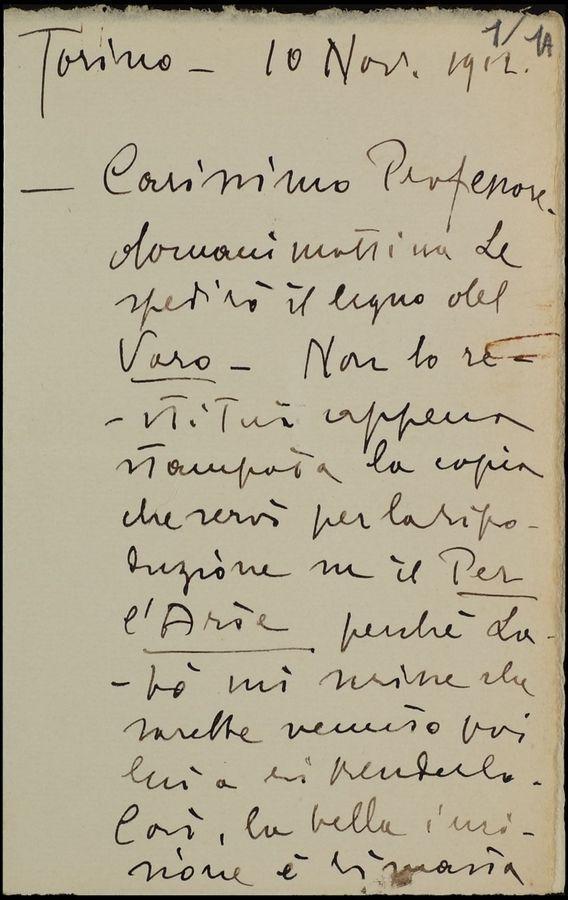 1/1A
Torino - 10 Nov. 1912.
- Carissimo Professore.
domani mattina Le
spedirò il legno del
Varo - Non lo re-
- stituii appena
stampata la copia
che servì per la ripo-
duzione su il Per
l'Arte perché La-
- pò mi scrisse che
sarebbe venuto poi
lui a riprenderlo.
Così, la bella inci-
sione è rimasta